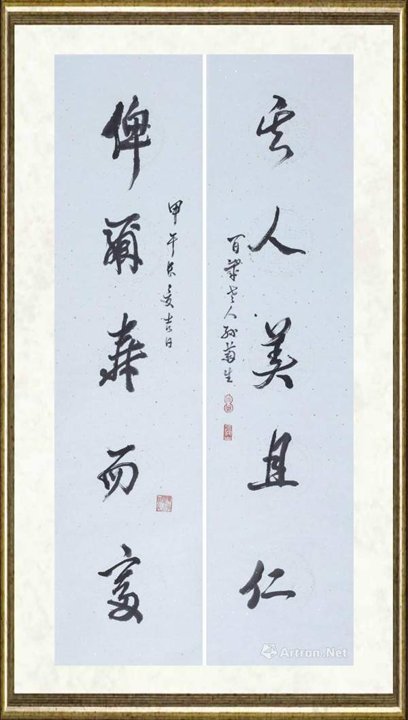 其人美且仁
百歲老人孙菊生
俾爾壽而富
甲午长夏吉日
Artron.Net